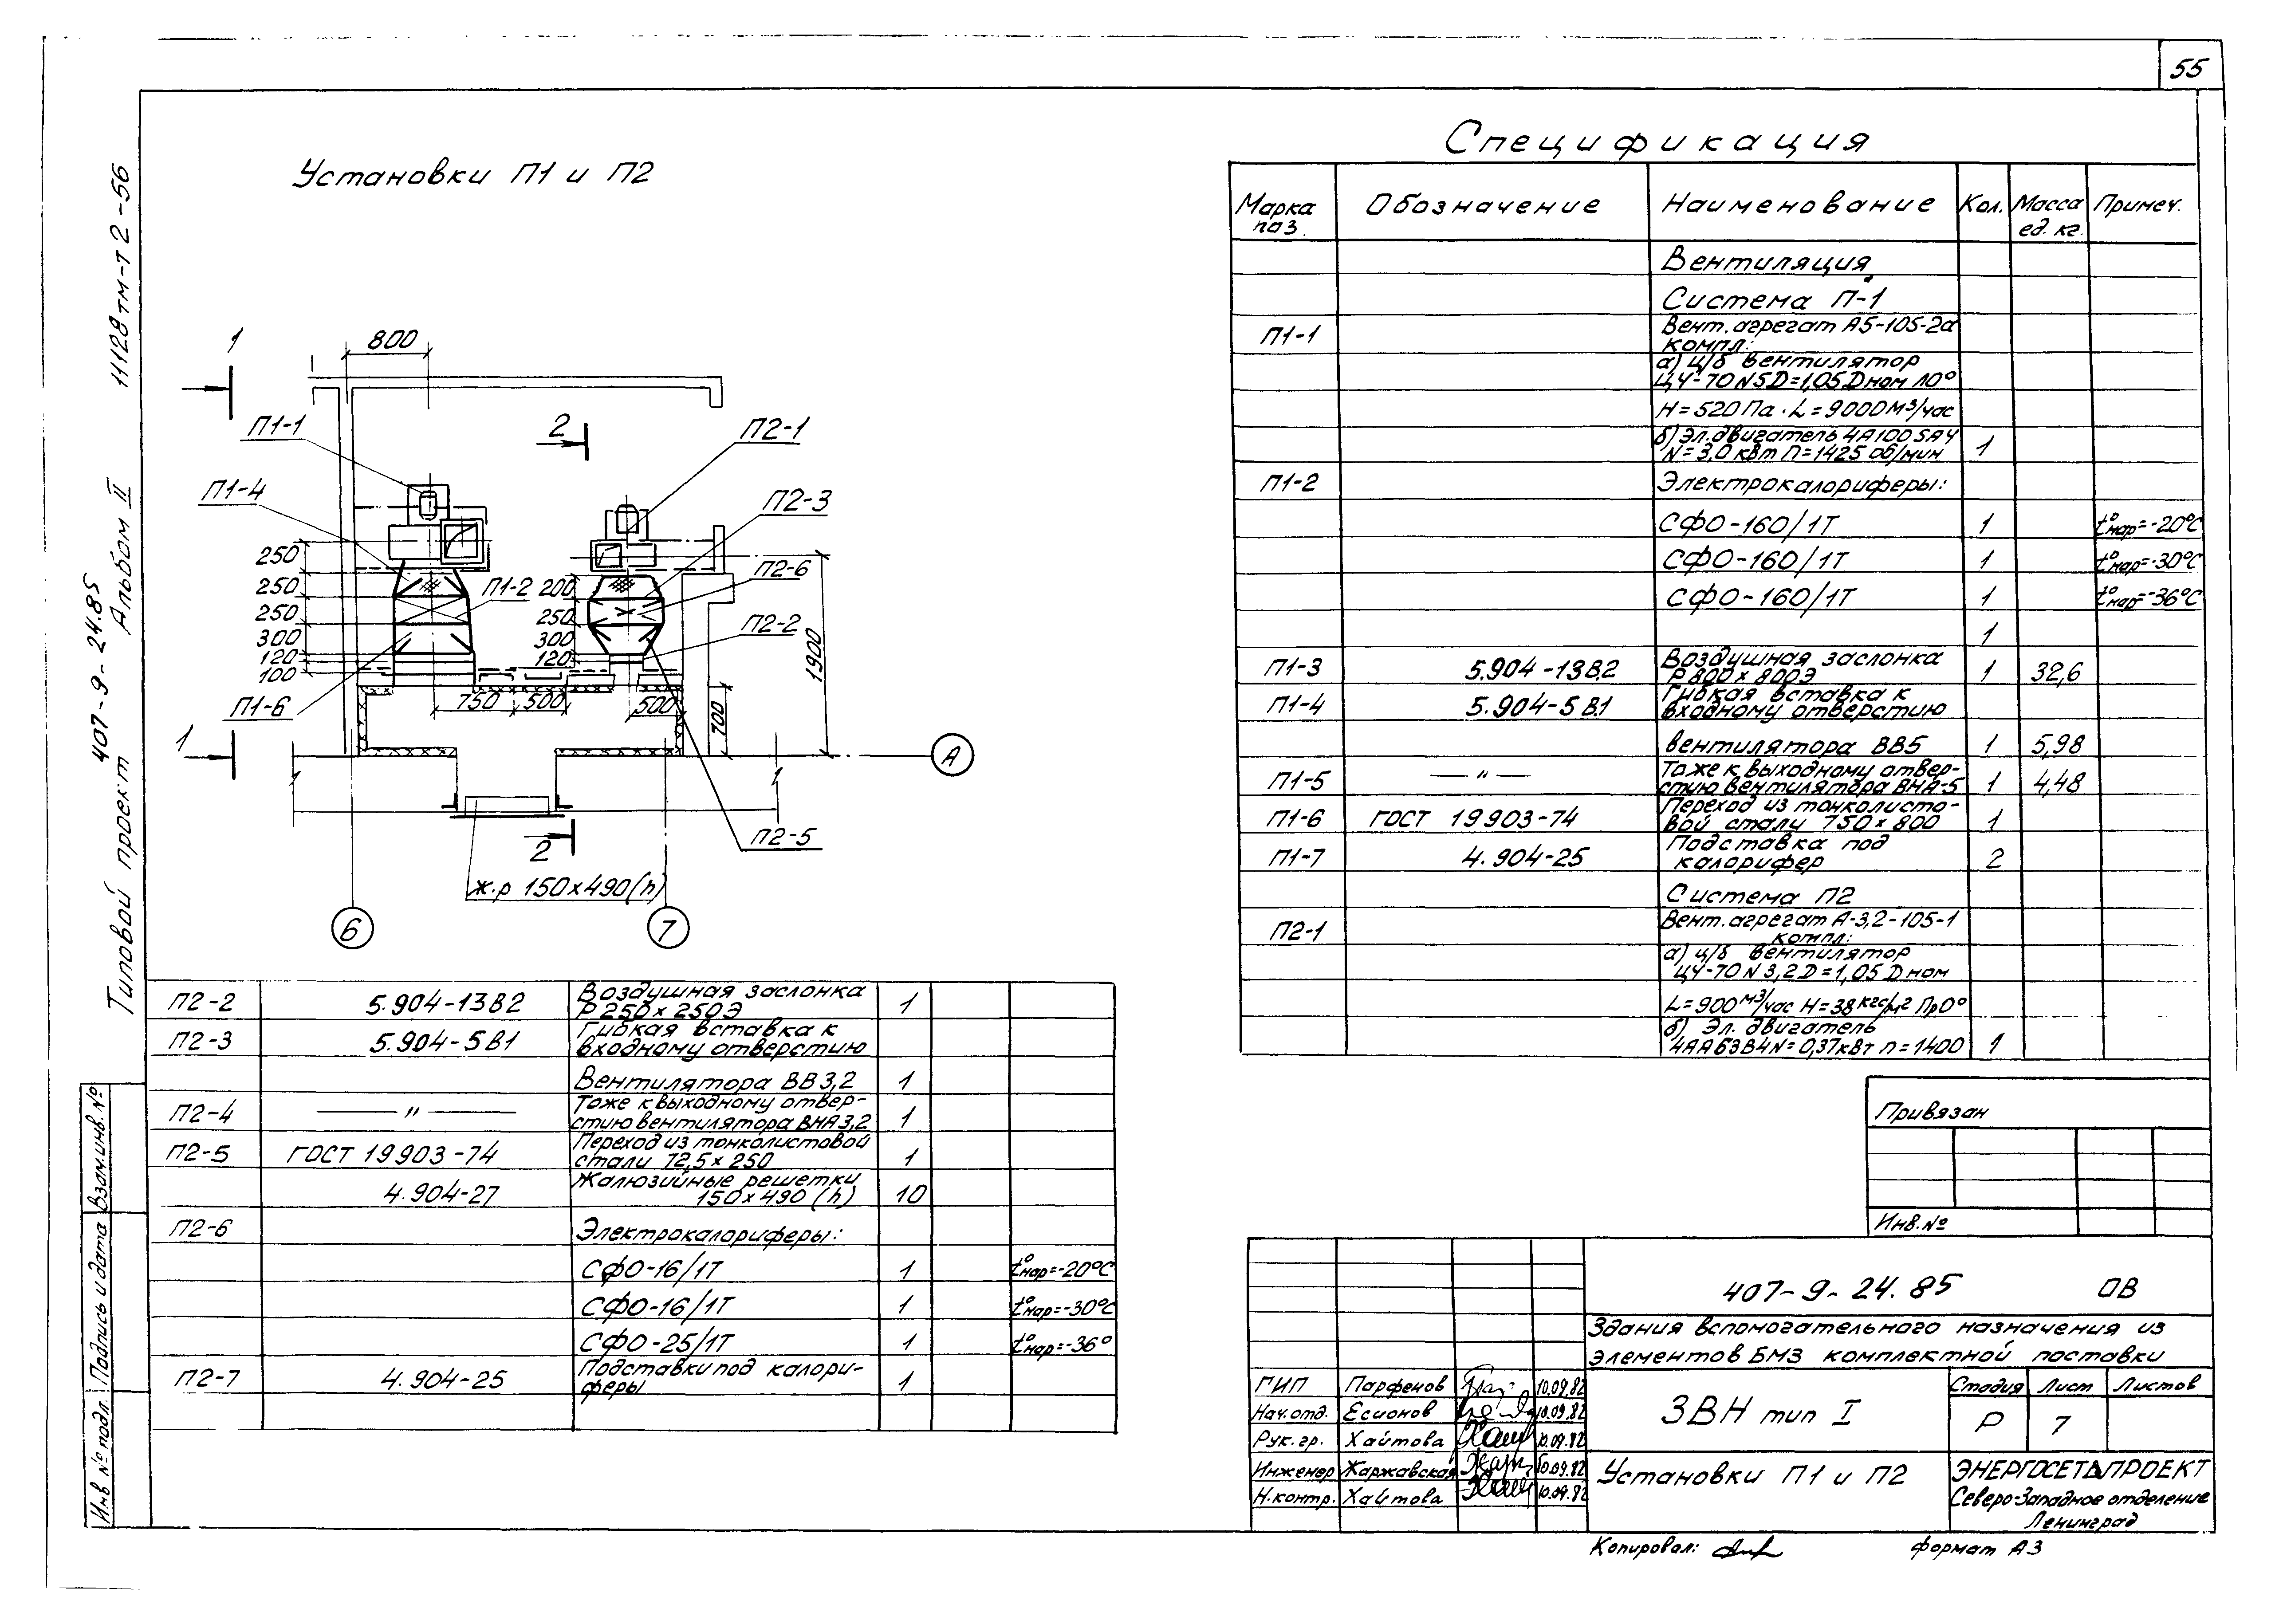 55
Типовой проект 407-9-24.85 Альбом II 11128тм-т2-56
Установки П1 и П2
1
800
П1-1
2
П2-1
П1-4
П2-3
250
П2-6
250
П1-2
200
250
250
П2-2
300
300
120
120
1900
100
П1-6
750
500
500
700
1
А
П2-5
2
ж.р 150х490(h)
6
7
Спецификация
Марка поз. Обозначение Наименование Кол. Масса ед. кг. Примеч.
Вентиляция
Система П-1
П1-1 Вент. агрегат А5-105-2а
компл:
а) ц/б вентилятор
Ц4-70 N5 D=1,05 Dном Л0°
H=520Па. L=9000м³/час
б) Эл.двигатель 4А100SА4
N=3,0 квт П=1425 об/мин 1
П1-2 Электрокалориферы:
СФО-160/1Т 1 t°нар=-20°С
СФО-160/1Т 1 t°нар=-30°С
СФО-160/1Т 1 t°нар=-36°С
1
П1-3 5.904-13В.2 Воздушная заслонка
Р 800х800Э 1 32,6
П1-4 5.904-5В.1 Гибкая вставка к
входному отверстию
вентилятора ВВ5 1 5,98
П1-5 —〃— Тоже к выходному отвер-
стию вентилятора ВНА-5 1 4,48
П1-6 ГОСТ 19903-74 Переход из тонколисто-
вой стали 750х800 1
П1-7 4.904-25 Подставка под
калорифер 2
Система П2
П2-1 Вент. агрегат А-3,2-105-1
компл:
а) ц/б вентилятор
Ц4-70 N3,2 D=1,05 Dном
L=900м³/час H=38кгс/м² Пр0°
б) Эл. двигатель
4АА63В4 N=0,37кВт п=1400 1
П2-2 5.904-13В2 Воздушная заслонка
Р 250х250Э 1
П2-3 5.904-5В1 Гибкая вставка к
входному отверстию
Вентилятора ВВ3,2 1
П2-4 —〃— Тоже к выходному отвер-
стию вентилятора ВНА3,2 1
П2-5 ГОСТ 19903-74 Переход из тонколистовой
стали 72,5х250 1
4.904-27 Жалюзийные решетки
150х490 (h) 10
П2-6 Электрокалориферы:
СФО-16/1Т 1 t°нар=-20°С
СФО-16/1Т 1 t°нар=-30°С
СФО-25/1Т 1 t°нар=-36°
П2-7 4.904-25 Подставки под калори-
феры 1
Инв № подл. Подпись и дата Взам.инв. №
Привязан
Инв. №
407-9-24.85 ОВ
Здания вспомогательного назначения из
элементов БМЗ комплектной поставки
ГИП Парфенов 10.09.82
Нач. отд. Есионов 10.09.82
Рук. гр. Хаитова 10.09.82
Инженер Жаржавская 10.09.82
Н.контр. Хаитова 10.09.82
ЗВН тип I
Стадия Лист Листов
Р 7
Установки П1 и П2
ЭНЕРГОСЕТЬПРОЕКТ
Северо-Западное отделение
Ленинград
Копировал:
формат А3